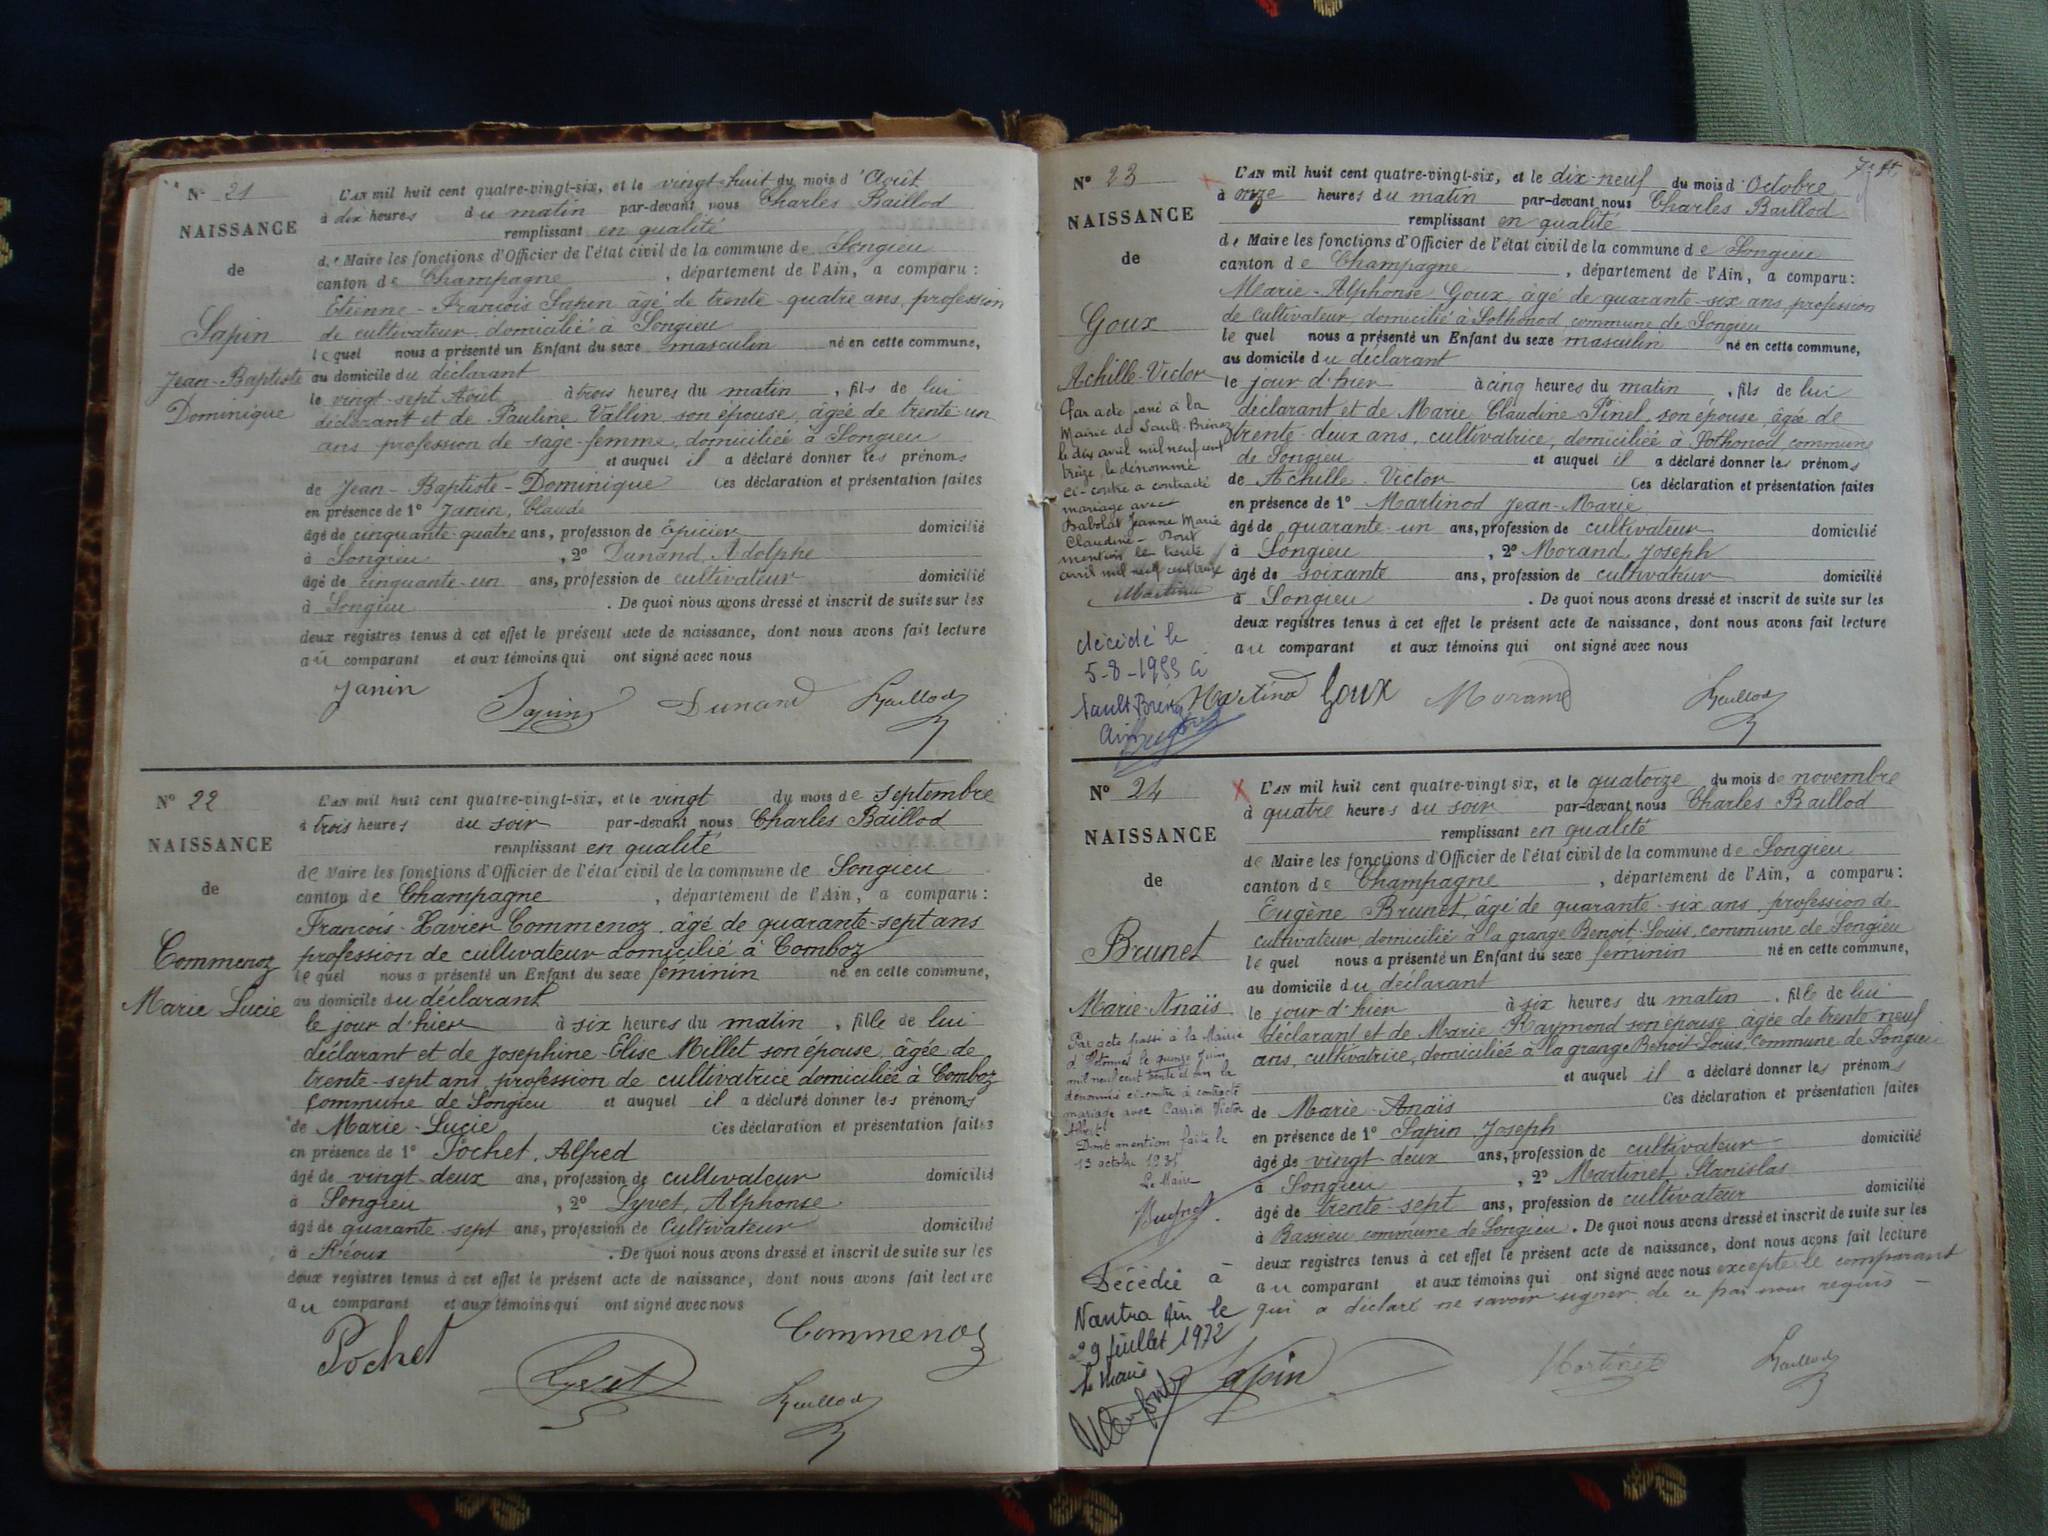 N° 21
NAISSANCE
de
Sapin
Jean-Baptiste
Dominique
L'AN mil huit cent quatre-vingt-six, et le vingt-huit du mois d'Août
à dix heures du matin par-devant nous Charles Baillod
remplissant en qualité
de Maire les fonctions d'Officier de l'état civil de la commune de Songieu
canton de Champagne, département de l'Ain, a comparu :
Etienne-François Sapin âgé de trente-quatre ans, profession
de cultivateur, domicilié à Songieu
lequel nous a présenté un Enfant du sexe masculin né en cette commune,
au domicile du déclarant
le vingt-sept Août à trois heures du matin, fils de lui
déclarant et de Pauline Vallin son épouse, âgée de trente-un
ans profession de sage-femme, domiciliée à Songieu
et auquel il a déclaré donner les prénoms
de Jean-Baptiste-Dominique Ces déclaration et présentation faites
en présence de 1° Janin, Claude
âgé de cinquante-quatre ans, profession de Epicier domicilié
à Songieu, 2° Dunand, Adolphe
âgé de cinquante-un ans, profession de cultivateur domicilié
à Songieu. De quoi nous avons dressé et inscrit de suite sur les
deux registres tenus à cet effet le présent acte de naissance, dont nous avons fait lecture
au comparant et aux témoins qui ont signé avec nous
Janin Sapin Dunand Baillod
N° 22
NAISSANCE
de
Commenoz
Marie Lucie
L'AN mil huit cent quatre-vingt-six, et le vingt du mois de septembre
à trois heures du soir par-devant nous Charles Baillod
remplissant en qualité
de Maire les fonctions d'Officier de l'état civil de la commune de Songieu
canton de Champagne, département de l'Ain, a comparu :
François-Xavier Commenoz, âgé de quarante-sept ans
profession de cultivateur domicilié à Comboz
lequel nous a présenté un Enfant du sexe féminin né en cette commune,
au domicile du déclarant
le jour d'hier à six heures du matin, fille de lui
déclarant et de Josephine-Elise Millet son épouse, âgée de
trente-sept ans, profession de cultivatrice domiciliée à Comboz
commune de Songieu et auquel il a déclaré donner les prénoms
de Marie-Lucie Ces déclaration et présentation faites
en présence de 1° Pochet, Alfred
âgé de vingt-deux ans, profession de cultivateur domicilié
à Songieu, 2° Lyvet, Alphonse
âgé de quarante-sept ans, profession de Cultivateur domicilié
à Réoux. De quoi nous avons dressé et inscrit de suite sur les
deux registres tenus à cet effet le présent acte de naissance, dont nous avons fait lecture
au comparant et aux témoins qui ont signé avec nous
Commenoz
Pochet Lyvet Baillod
N° 23
NAISSANCE
de
Goux
Achille-Victor
Par acte passé à la
Mairie de Sault-Brénaz
le dix avril mil neuf cent
treize, le dénommé
ci-contre a contracté
mariage avec
Babolat Jeanne Marie
Claudine - Dont
mention le trente
avril mil neuf cent treize
décédé le
5-8-1955 à
Sault Brénaz
Ain
L'AN mil huit cent quatre-vingt-six, et le dix-neuf du mois d'Octobre
à onze heures du matin par-devant nous Charles Baillod
remplissant en qualité
de Maire les fonctions d'Officier de l'état civil de la commune de Songieu
canton de Champagne, département de l'Ain, a comparu :
Marie-Alphonse Goux, âgé de quarante-six ans, profession
de cultivateur, domicilié à Sothonod, commune de Songieu
lequel nous a présenté un Enfant du sexe masculin né en cette commune,
au domicile du déclarant
le jour d'hier à cinq heures du matin, fils de lui
déclarant et de Marie Claudine Pinel, son épouse, âgée de
trente-deux ans, cultivatrice, domiciliée à Sothonod, commune
de Songieu et auquel il a déclaré donner les prénoms
de Achille-Victor Ces déclaration et présentation faites
en présence de 1° Martinod Jean-Marie
âgé de quarante-un ans, profession de cultivateur domicilié
à Songieu, 2° Morand, Joseph
âgé de soixante ans, profession de cultivateur domicilié
à Songieu. De quoi nous avons dressé et inscrit de suite sur les
deux registres tenus à cet effet le présent acte de naissance, dont nous avons fait lecture
au comparant et aux témoins qui ont signé avec nous
Martinod Goux Morand Baillod
N° 24
NAISSANCE
de
Brunet
Marie-Anaïs
Par acte passé à la Mairie
le quinze Juin
mil neuf cent trente et un la
dénommée ci-contre a contracté
mariage avec Carrier Victor
Albert
Dont mention faite le
13 octobre 1931
Le Maire
Décédée à
Nantua Ain le
29 juillet 1972
le Maire
L'AN mil huit cent quatre-vingt-six, et le quatorze du mois de novembre
à quatre heures du soir par-devant nous Charles Baillod
remplissant en qualité
de Maire les fonctions d'Officier de l'état civil de la commune de Songieu
canton de Champagne, département de l'Ain, a comparu :
Eugène Brunet, âgé de quarante-six ans, profession de
cultivateur, domicilié à la grange Benoit-Louis, commune de Songieu
lequel nous a présenté un Enfant du sexe féminin né en cette commune,
au domicile du déclarant
le jour d'hier à six heures du matin, fille de lui
déclarant et de Marie Raymond son épouse, âgée de trente neuf
ans, cultivatrice, domiciliée à la grange Benoit-Louis commune de Songieu
et auquel il a déclaré donner les prénoms
de Marie-Anaïs Ces déclaration et présentation faites
en présence de 1° Sapin Joseph
âgé de vingt-deux ans, profession de cultivateur domicilié
à Songieu, 2° Martinet, Stanislas
âgé de trente-sept ans, profession de cultivateur domicilié
à Bassieu commune de Songieu. De quoi nous avons dressé et inscrit de suite sur les
deux registres tenus à cet effet le présent acte de naissance, dont nous avons fait lecture
au comparant et aux témoins qui ont signé avec nous excepté le comparant
qui a déclaré ne savoir signer de ce par nous requis
Sapin Martinet Baillod